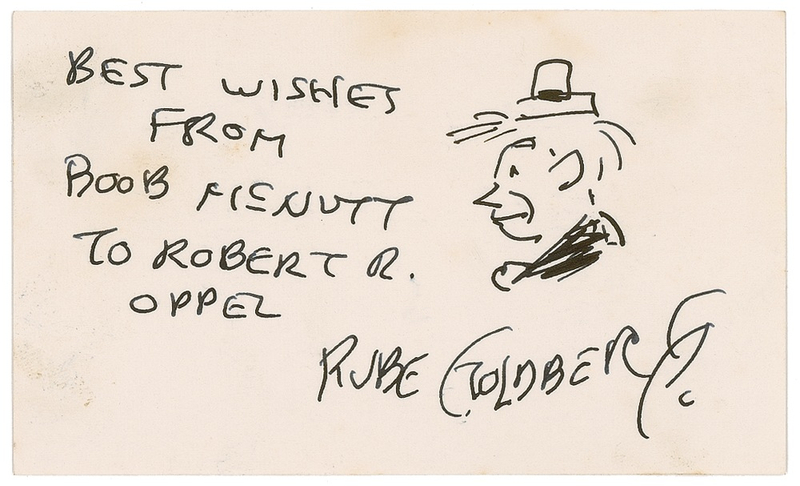 BEST WISHES
FROM
BOOB MCNUTT
TO ROBERT R.
OPPEL
RUBE GOLDBERG